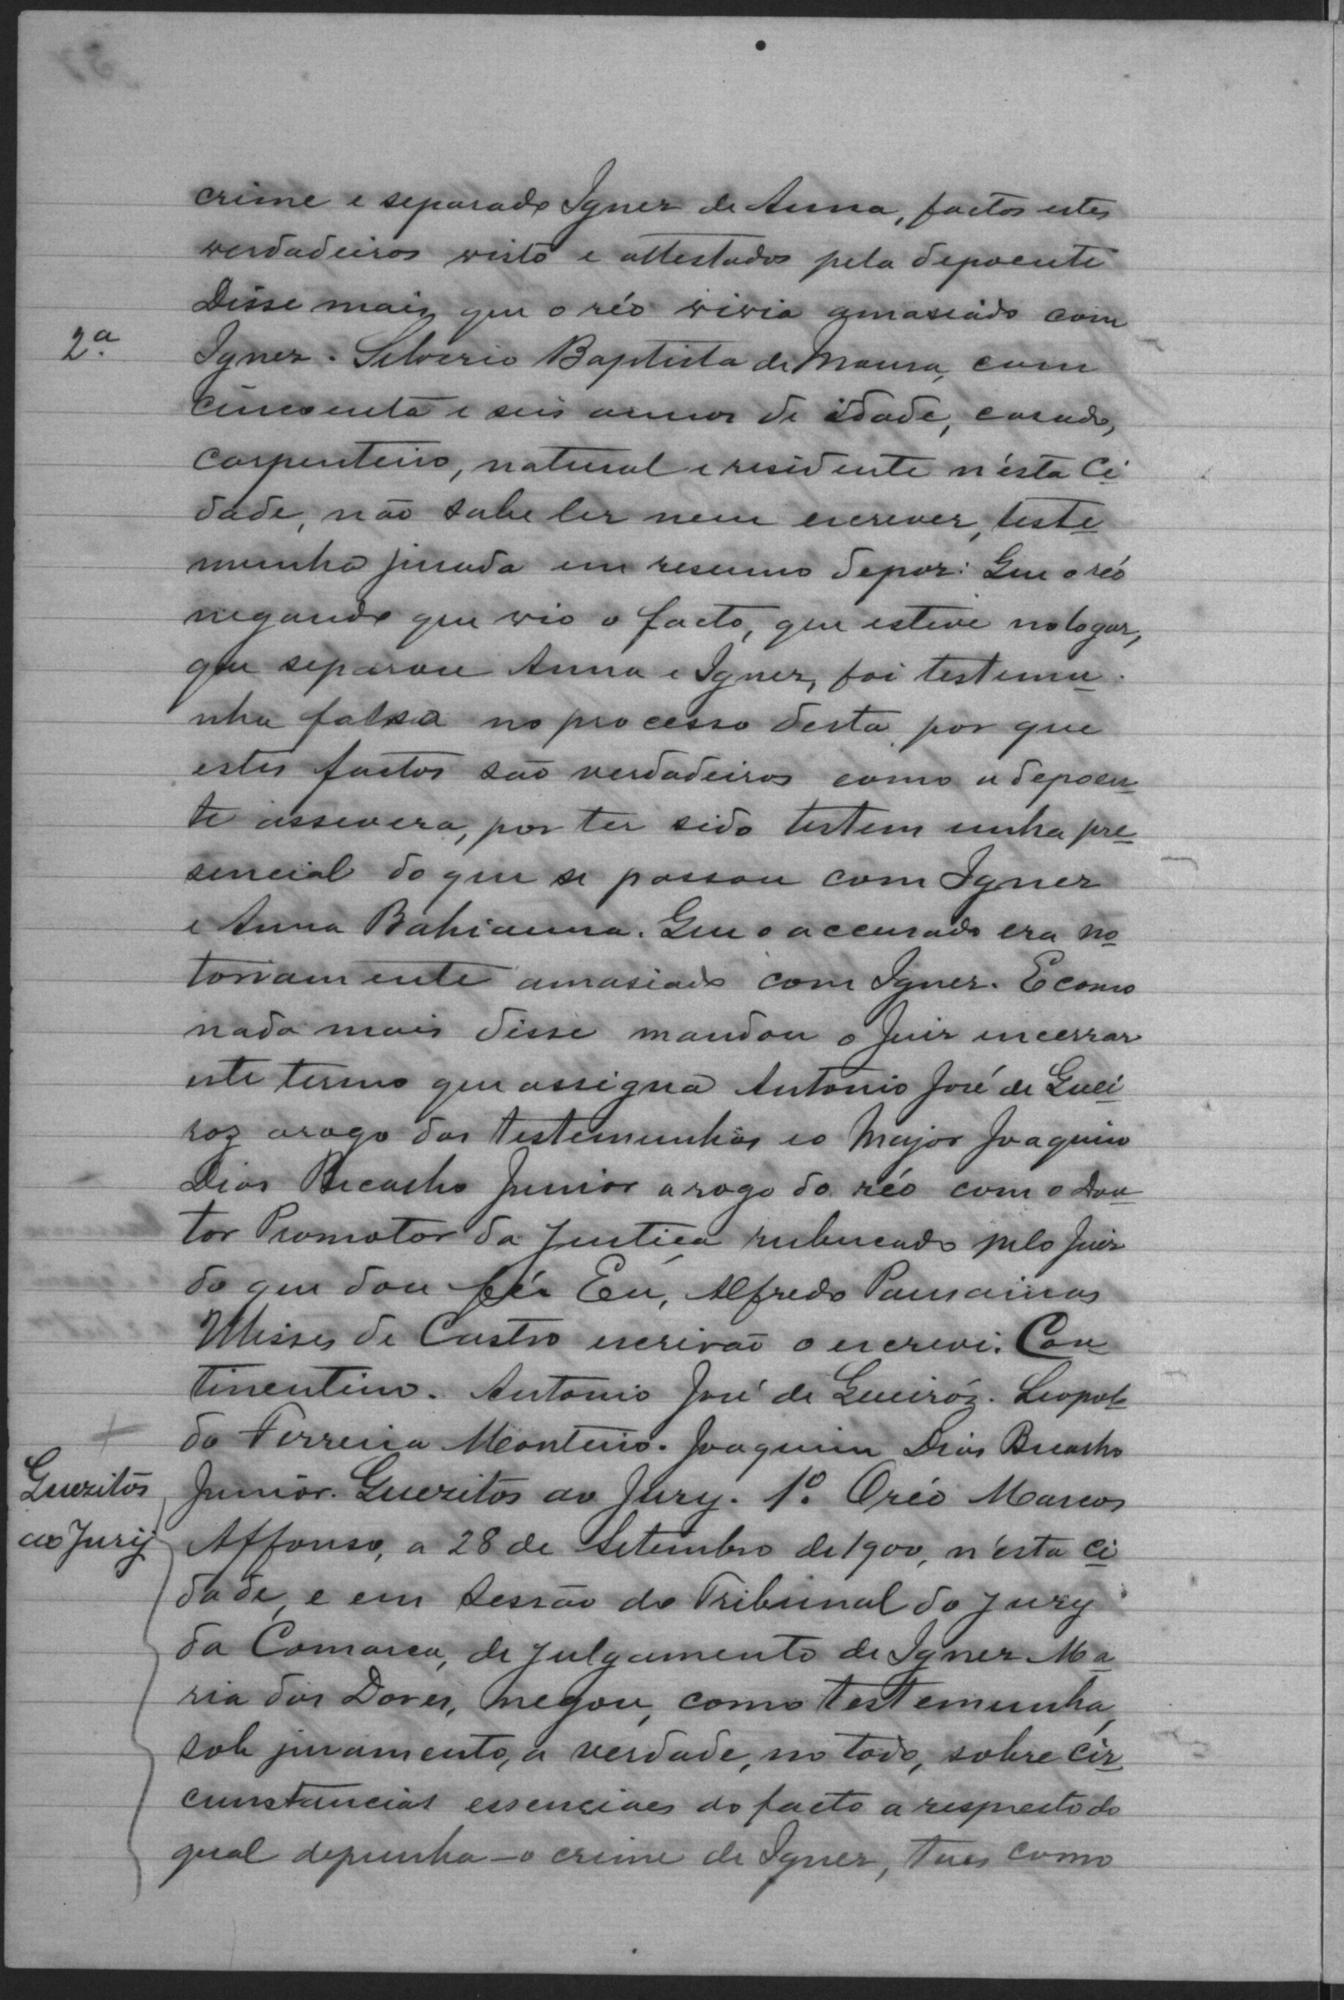 crime e separado Ignez de Anna, factos estes
verdadeiros visto e attestados pela depoente
Disse mais que o réo vivia amasiado com
2ª
Ignez. Silverio Baptista de Moura, com
cincoenta e seis annos de idade, casado,
carpenteiro, natural e residente n'esta Ci
dade, não sabe ler nem escrever, teste
munha jurada em resumo depoz: Que o réo
negando que vio o facto, que esteve no logar,
que separou Anna e Ignez, foi testemu
nha falsa no processo desta por que
estes factos são verdadeiros como a depoen
te assevera, por ter sido testemunha pre
sencial do que se passou com Ignez
e Anna Bahianna. Que o accusado era no
toriamente amasiado com Ignez. E como
nada mais disse mandou o Juiz encerrar
este termo que assigna Antonio José de Quei
roz arogo das testemunhas e o Major Joaquim
Dias Junior a rogo do réo com o Dou
tor Promotor da Justiça rubricado pelo Juiz
do que dou fé. Eu, Alfredo
Ulisses de Castro escrivão o escrevi. Con
tinentino. Antonio José de Queiróz. Leopol
do Ferreira Monteiro. Joaquim Dias
Junior. Quezitos ao Jury. 1º. O réo Marcos
Quezitos
ao Jury
Affonso, a 28 de Setembro de 1900, n'esta ci
dade, e em sessão do Tribunal do Jury
da Comarca, de julgamento de Ignez Ma
ria das Dores, negou, como testemunha,
sob juramento, a verdade, no todo, sobre cir
cunstancias essenciaes do facto a respeito do
qual depunha - o crime de Ignez, taes como